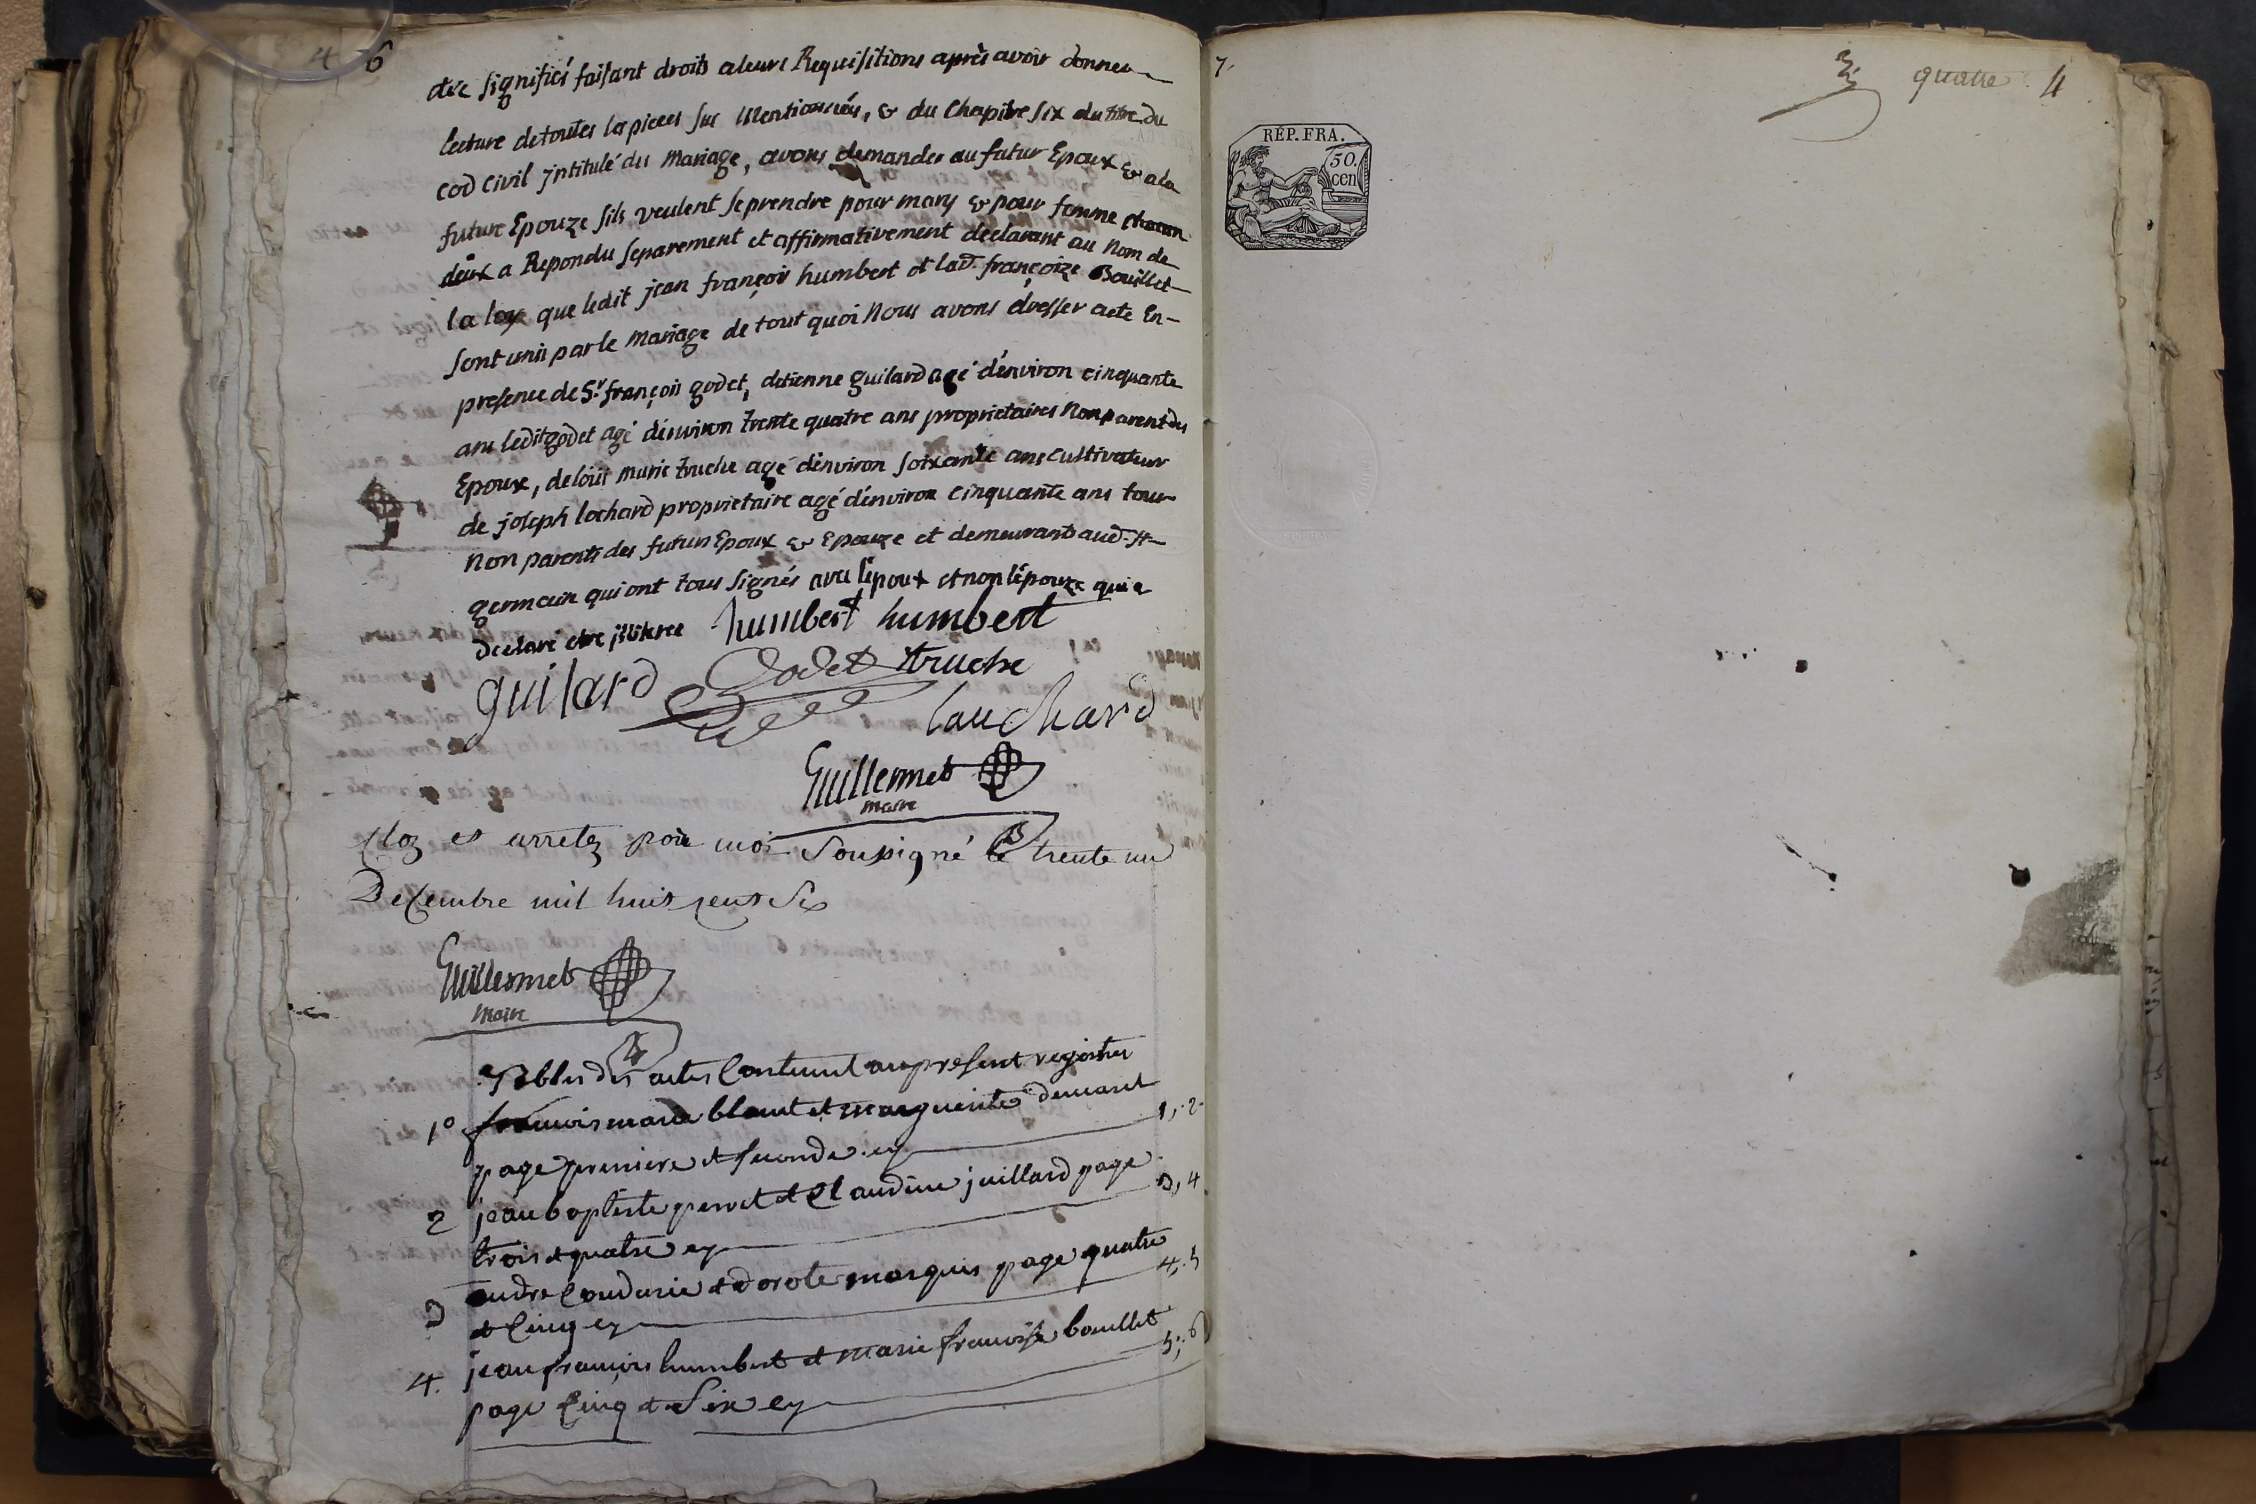 4 6
etc signifiés faisant droits a leurs Requisitions après avoir donner
lecture de toutes les pieces sus Mentionnées, & du Chapitre six du titre du
cod Civil jntitulé du Mariage, avons demander au futur Epoux & a la
future Epouze sils veulent se prendre pour mary & pour femme chacun
deux a Repondu separement et affirmativement declarant au Nom de
la loy que ledit jean françois humbert et lad. françoize Bouillet
sont unis par le mariage de tout quoi Nous avons dresser acte En-
presence de Sr. françois godet, detienne guilard agé d'environ cinquante
ans ledit godet agé d'environ trente quatre ans proprietaires Non parent des
Epoux, de loüis marie truche agé d'environ soixante ans cultivateur
de joseph lochard proprietaire agé d'environ cinquante ans tous
Non parents des futurs Epoux & Epouze et demeurants aud. st-
germain qui ont tous signés avec l'époux et non l'épouze qui a
declaré etre jlliteree humbert humbert
guilard Godet truche
lauchard
Guillermet
maire
Cloz et arretez par moi Soussigné le trente un
Decembre mil huit cent Six
Guillermet
Maire
Tables des actes Contenut au present registre
1° francois marie blanut et marguerite
page premiere et seconde cy 1, 2
2 jean baptiste perret et Claudine juillard page
trois et quatre cy 3, 4
3 andre et dorote marquis page quatre
et Cinq cy 4, 5
4. jean francois humbert et marie francoise bouillet
page Cinq et Six cy 5, 6
7.
quatre 4
RÉP. FRA.
50.
cen